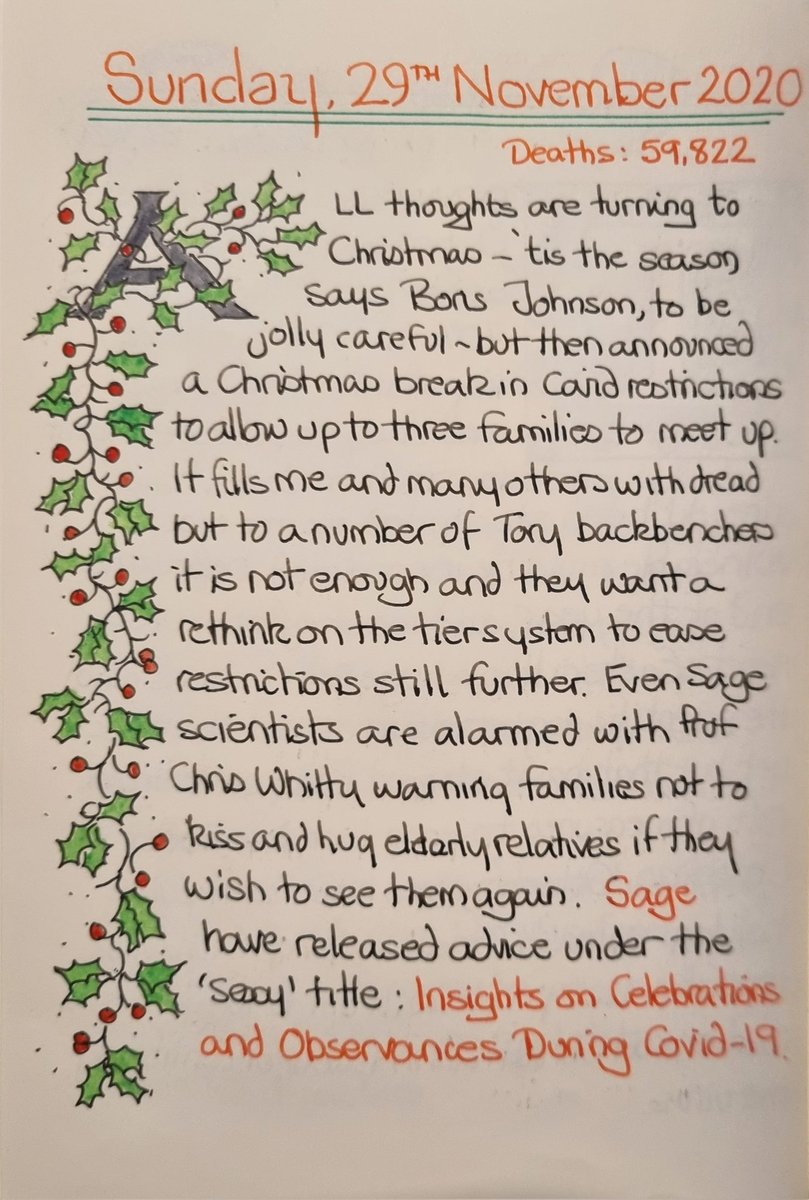 Sunday, 29TH November 2020
Deaths: 59,822
ALL thoughts are turning to
Christmas – 'tis the season
says Boris Johnson, to be
jolly careful ~ but then announced
a Christmas break in Covid restrictions
to allow up to three families to meet up.
It fills me and many others with dread
but to a number of Tory backbenchers
it is not enough and they want a
rethink on the tier system to ease
restrictions still further. Even Sage
scientists are alarmed with Prof
Chris Whitty warning families not to
kiss and hug elderly relatives if they
wish to see them again. Sage
have released advice under the
'sexy' title: Insights on Celebrations
and Observances During Covid-19.